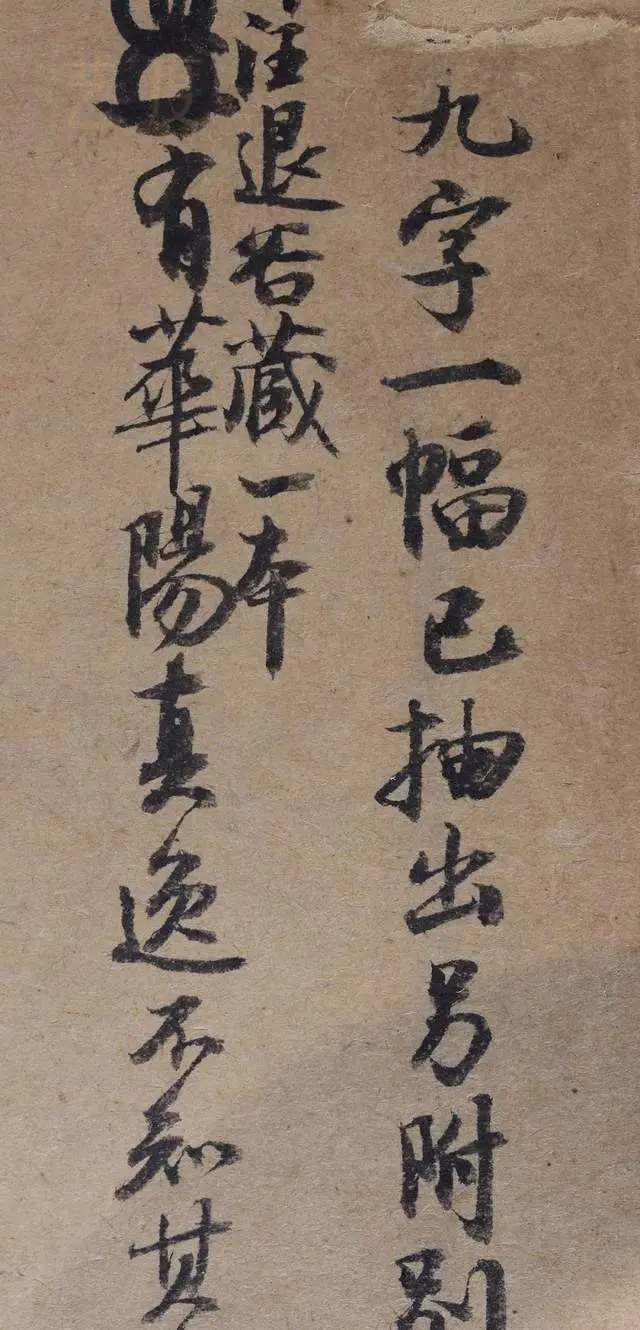 九字一幅已抽出另附别
汪退谷藏一本
有華陽真逸不知其